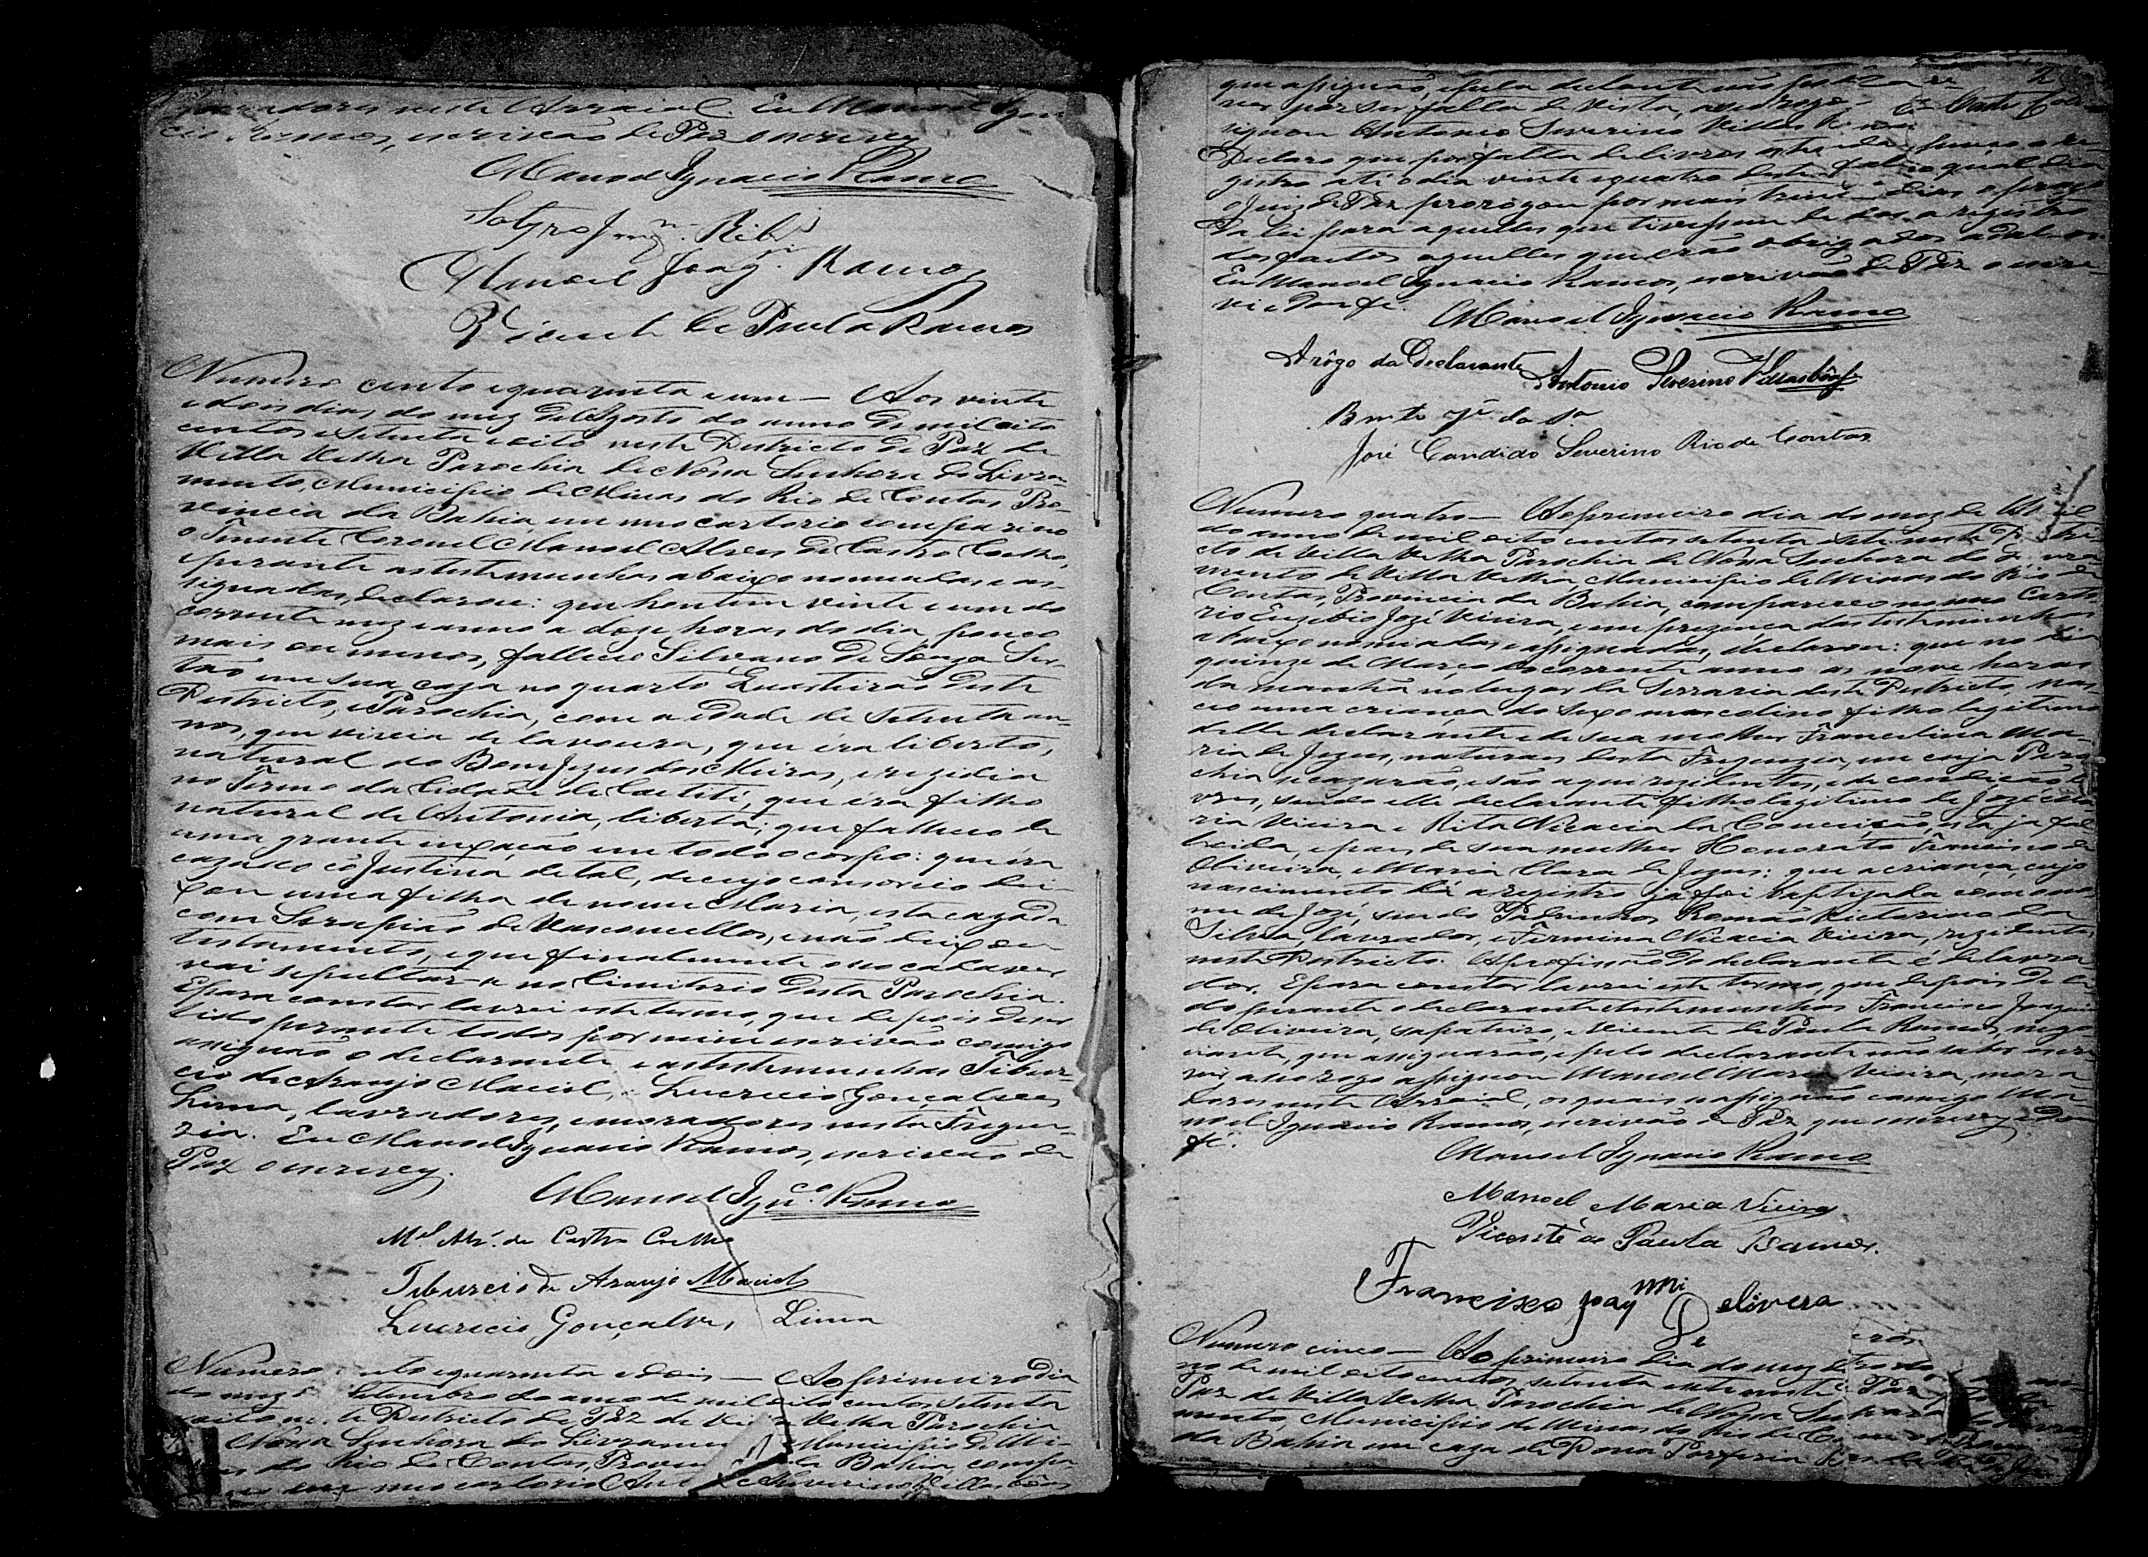 moradores neste Arraial. Eu Manoel Igna-
cio Ramos, escrivão de Paz o escrevy
Manoel Ignacio Ramos
Manoel Joaq. Ramos
Vicente de Paula Ramos
Numero cento e quarenta e um — Aos vinte
e dois dias do mez de Agosto do anno de mil oito
centos e setenta e oito neste Districto de Paz de
Villa Velha Parochia de Nossa Senhora do Livra-
mento, Municipio de Minas do Rio de Contas Pro-
vincia da Bahia em meo cartorio compareceo
o Tenente Coronel Manoel Alves de Castro Coelho,
e perante as testemunhas abaixo nomeadas e as-
signadas, declarou: que hontem vinte e um do
corrente mez e anno a doze horas do dia, pouco
mais ou menos, falleceo Silvano de Souza Ser-
tão em sua caza no quarto Quarteirão deste
Districto, e Parochia, com a idade de setenta an-
nos, que vivia de lavoura, que éra liberto,
natural do Bom Jezus dos Meiras, e rezidia
no Termo da Cidade de Caetité, que éra filho
natural de Antonia, liberta; que falleceo de
uma grande inxação em todo o corpo: que éra
cazado cõ Justina de tal, de cujo consorcio dei-
xou uma filha de nome Maria, esta cazada
com Serapião de Vasconcellos, e não deixou
testamento, e que finalmente o seo cadaver
vai sepultar-se no Cimiterio desta Parochia.
E para constar lavrei este termo, que depois de ser
lido perante todos por mim escrivão comigo
assignão o declarante e as testemunhas Tibur-
cio de Araujo Maciel, e Lucrecio Gonçalves
Lima, lavradores, e moradores nesta Fregue-
zia. Eu Manoel Ignacio Ramos, escrivão de
Paz o escrevy.
Manoel Ign.co Ramos
M.el Alz. de Castro Coelho
Tiburcio de Araujo Maciel
Lucrecio Gonçalves Lima
Numero cento e quarenta e dois — Ao primeiro dia
do mez de Setembro do anno de mil oito centos setenta
e oito neste Districto de Paz de Villa Velha Parochia
de Nossa Senhora do Livramento Municipio de Mi-
nas do Rio de Contas, Provincia da Bahia compa
receo em meo cartorio Antonio Severino Villasbôas
que assignão, e pela declarante não
ver por ser falta de vista, a seo rogo
signou Antonio Severino Villas Bôas
Declaro que por falta de livros
gistro até o dia vinte e quatro deste
o Juiz de Paz prorogou por mais trinta dias o prazo
da lei para aquelles que tivessem de dar a registro
dos factos aquelles que erão obrigados a dal-os
Eu Manoel Ignacio Ramos, escrivão de Paz o escre-
vi e dou fé.
Manoel Ignacio Ramos
Arôgo da Declarante Antonio Severino Villasbôas
José Candido Severino Rio de Contas
Numero quatro — Ao primeiro dia do mez de Abril
do anno de mil oito centos setenta e sete neste Distri
cto de Villa Velha Parochia de Nossa Senhora do Livra
mento de Villa Velha, Municipio de Minas do Rio de
Contas, Provincia da Bahia, compareceo no meo Carto
rio Euzebio Jozé Vieira, e em prezença das testemunhas
abaixo nomiadas e assignadas, declarou: que no dia
quinze de Março do corrente anno as nove horas
da manhã no lugar da Serraria deste Districto, nas-
ceo uma criança do sexo masculino filho legitimo
delle declarante e de sua molher Francelina Ma-
ria de Jezus, naturaes desta Freguezia, em cuja Paro
chia se cazarão, e são aqui rezidentes, e de condicção li
vres, sendo elle declarante filho legitimo de Jozé Ma
ria Vieira e Rita Nicacia da Conceição, esta já fal
lecida, e paes de sua mulher Honorato Francisco de
Oliveira, e Maria Clara de Jezus: que a criança, cujo
nascimento dá a registro, ja foi baptizada com o no
me de Jozé, sendo Padrinhos Romão Victorino da
Silva, lavrador, e Firmina Nicacia Vieira, rezidentes
neste Districto. A profissão do declarante é de lavra
dor. E para constar lavrei este termo, que depois de li
do perante o declarante e testemunhas Francisco Joaquim
de Oliveira, sapateiro, e Vicente de Paula Ramos, nego
ciante, que assignarão, e pelo declarante não saber escre
ver, a seo rogo assignou Manoel Maria Vieira, mora
dores neste Arraial, os quais assignão comigo Ma
noel Ignacio Ramos, escrivão de Paz que escrevy e dou
fé.
Manoel Ignacio Ramos
Manoel Maria Vieira
Vicente de Paula Ramos.
Francisco Joaqm. de Olivera
Numero cinco — Ao primeiro dia do mez de
no de mil oito centos setenta e sete neste
Paz de Villa Velha Parochia de Nossa Senhora do Livra
mento, Municipio de Minas do Rio de Contas Provincia
da Bahia em caza de Dona Porferia